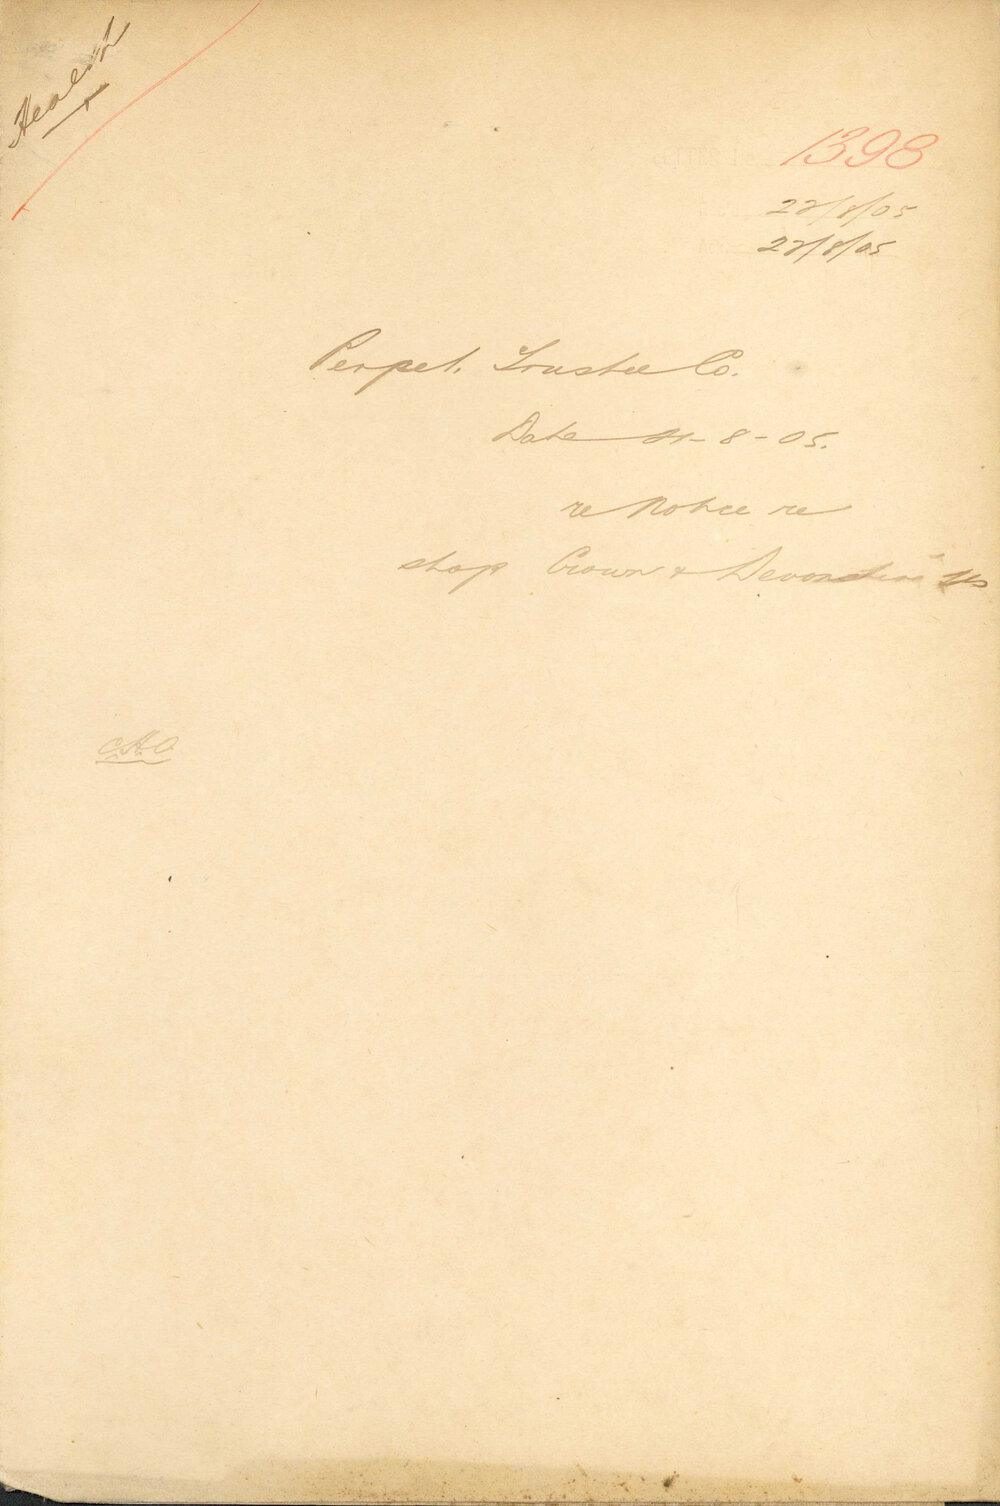 Health
1398
22/8/05
22/8/05
Perpet. Trustee Co.
Date 21-8-05.
re Notice re
shop Crown & Devonshire Sts
CHO